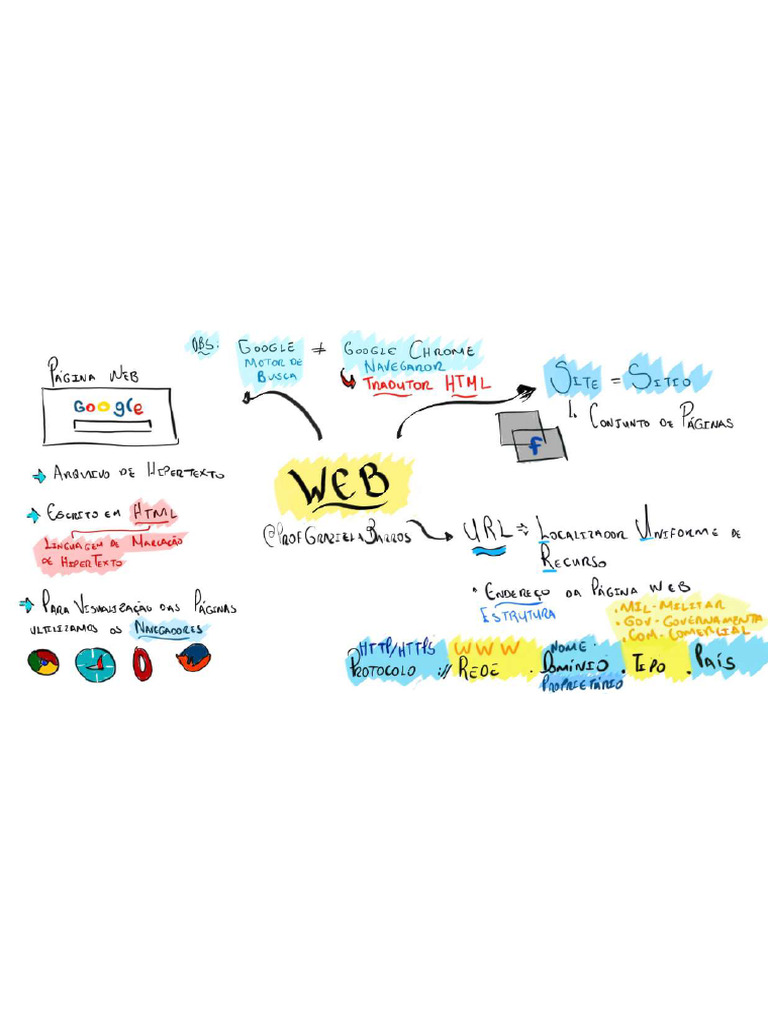 OBS: GOOGLE ≠ GOOGLE CHROME
MOTOR DE BUSCA
NAVEGADOR
TRADUTOR HTML
PÁGINA WEB
GOOGLE
→ ARQUIVO DE HIPERTEXTO
→ ESCRITO EM HTML
LINGUAGEM DE MARCAÇÃO
DE HIPERTEXTO
→ PARA VISUALIZAÇÃO DAS PÁGINAS
ULTILIZAMOS OS NAVEGADORES
WEB
@PROFGRAZIELABARROS
SITE = SITIO
CONJUNTO DE PÁGINAS
f
URL ⇒ LOCALIZADOR UNIFORME DE
RECURSO
• ENDEREÇO DA PÁGINA WEB
ESTRUTURA
. MIL - MILITAR
. GOV - GOVERNAMENTA
. COM - COMERCIAL
HTTP/HTTPS WWW NOME
PROTOCOLO :// REDE . DOMÍNIO . TIPO . PAÍS
PROPRIETÁRIO